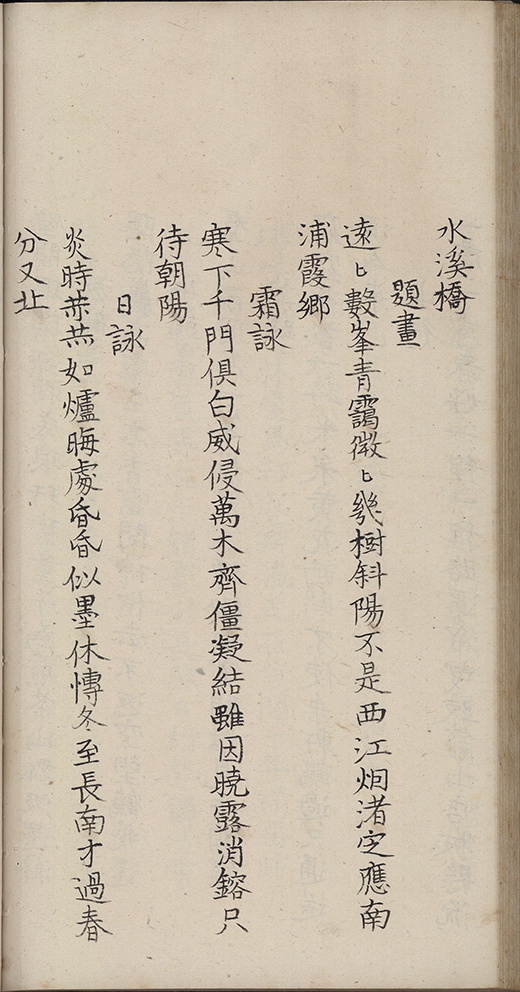 水溪橋
題畫
遠〻數峯青靄微〻幾樹斜陽不是西江烟渚定應南
浦霞鄉
霜詠
寒下千門俱白威侵萬木齊僵凝結雖因曉露消鎔只
待朝陽
日詠
炎時恭恭如爐晦處昏昏似墨休慱冬至長南才過春
分又北